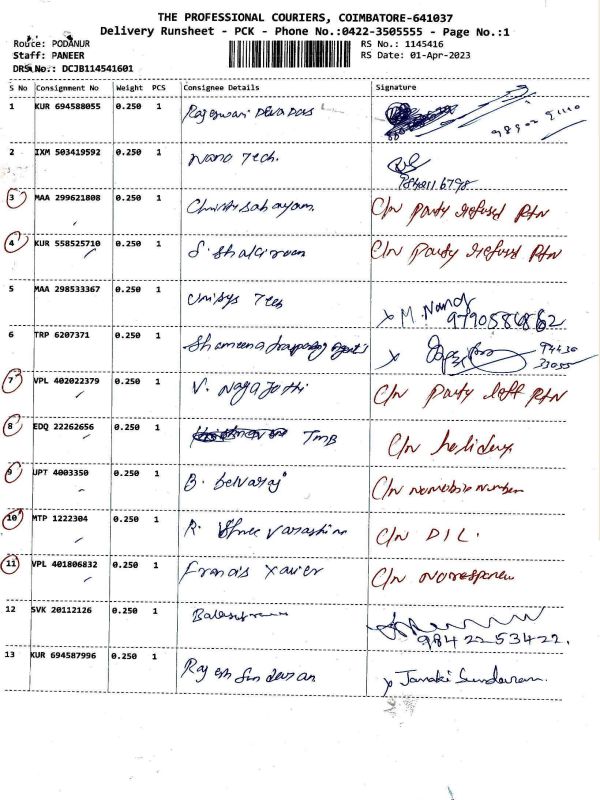 THE PROFESSIONAL COURIERS, COIMBATORE-641037
Delivery Runsheet - PCK - Phone No.:0422-3505555 - Page No.:1
Route: PODANUR RS No.: 1145416
Staff: PANEER RS Date: 01-Apr-2023
DRS No.: DCJB114541601
S No Consignment No Weight PCS Consignee Details Signature
1 KUR 694588055 0.250 1 Rajeswari Deva Das
2 IXM 503419592 0.250 1 Nano Tech.
3 MAA 299621808 0.250 1 Christy Sahayam. C/N Party refused RTN
4 KUR 558525710 0.250 1 C/N Party refused RTN
5 MAA 298533367 0.250 1 Unisys Tech x M. Nandy
9790586862
6 TRP 6207371 0.250 1 Shameena x 94430
33055
7 VPL 402022379 0.250 1 V. Nagajothi C/N Party left RTN
8 EDQ 22262656 0.250 1 TMB C/N holiday
9 UPT 4003350 0.250 1 B. Selvaraj C/N no mobile number
10 MTP 1222304 0.250 1 R. Shree Varashini C/N D/L.
11 VPL 401806832 0.250 1 Francis Xavier C/N no response
12 SVK 20112126 0.250 1
9842253422.
13 KUR 694587996 0.250 1 Rajesh Sundaran x Janaki Sundaram.